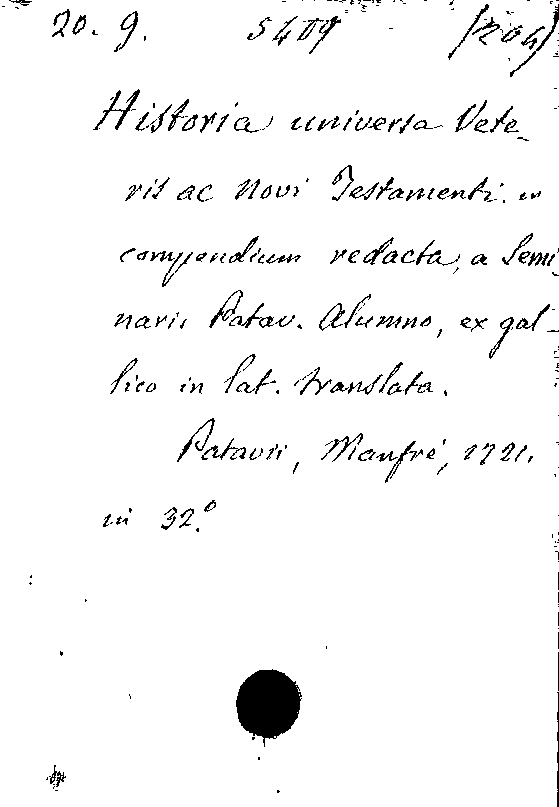 20. 9. 5409 (204)
Historia universa Vete-
ris ac Novi Testamenti in
compendium redacta, a Semi-
narii Patav. Alumno, ex gal-
lico in lat. translata.
Patavii, Manfrè, 1721.
in 32.º